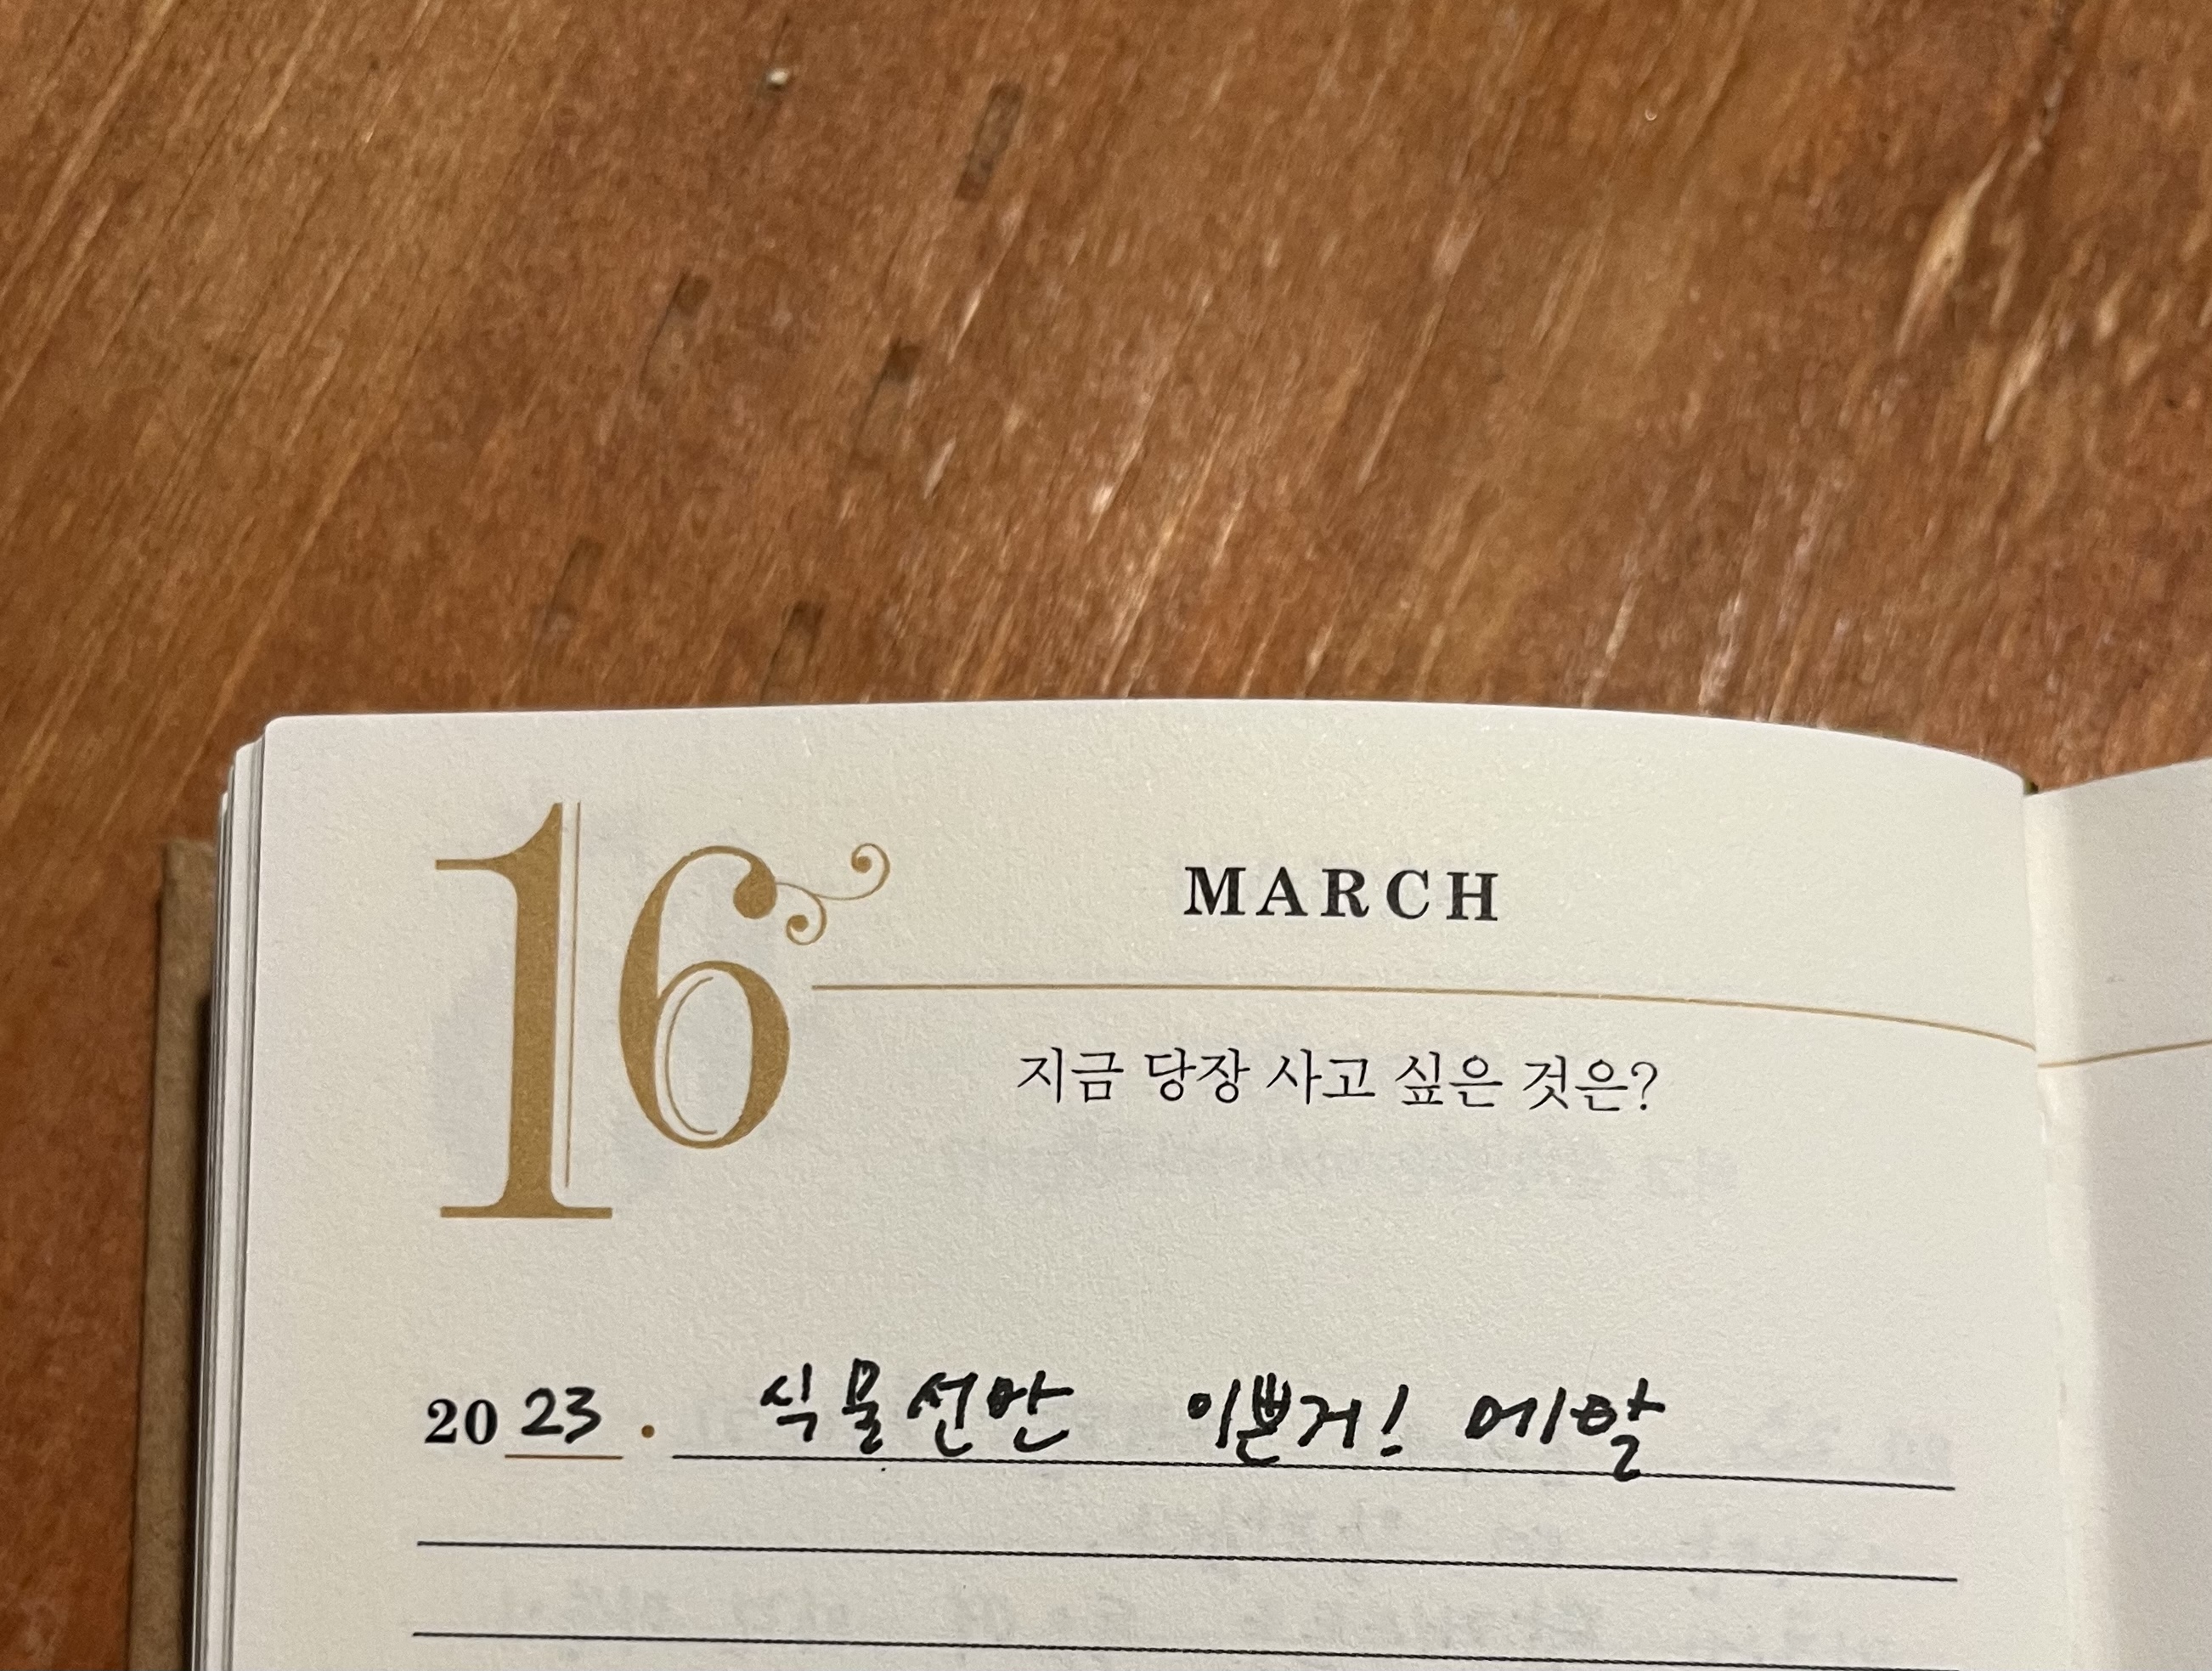 16
MARCH
지금 당장 사고 싶은 것은?
2023. 식물선반 이쁜거! 메탈